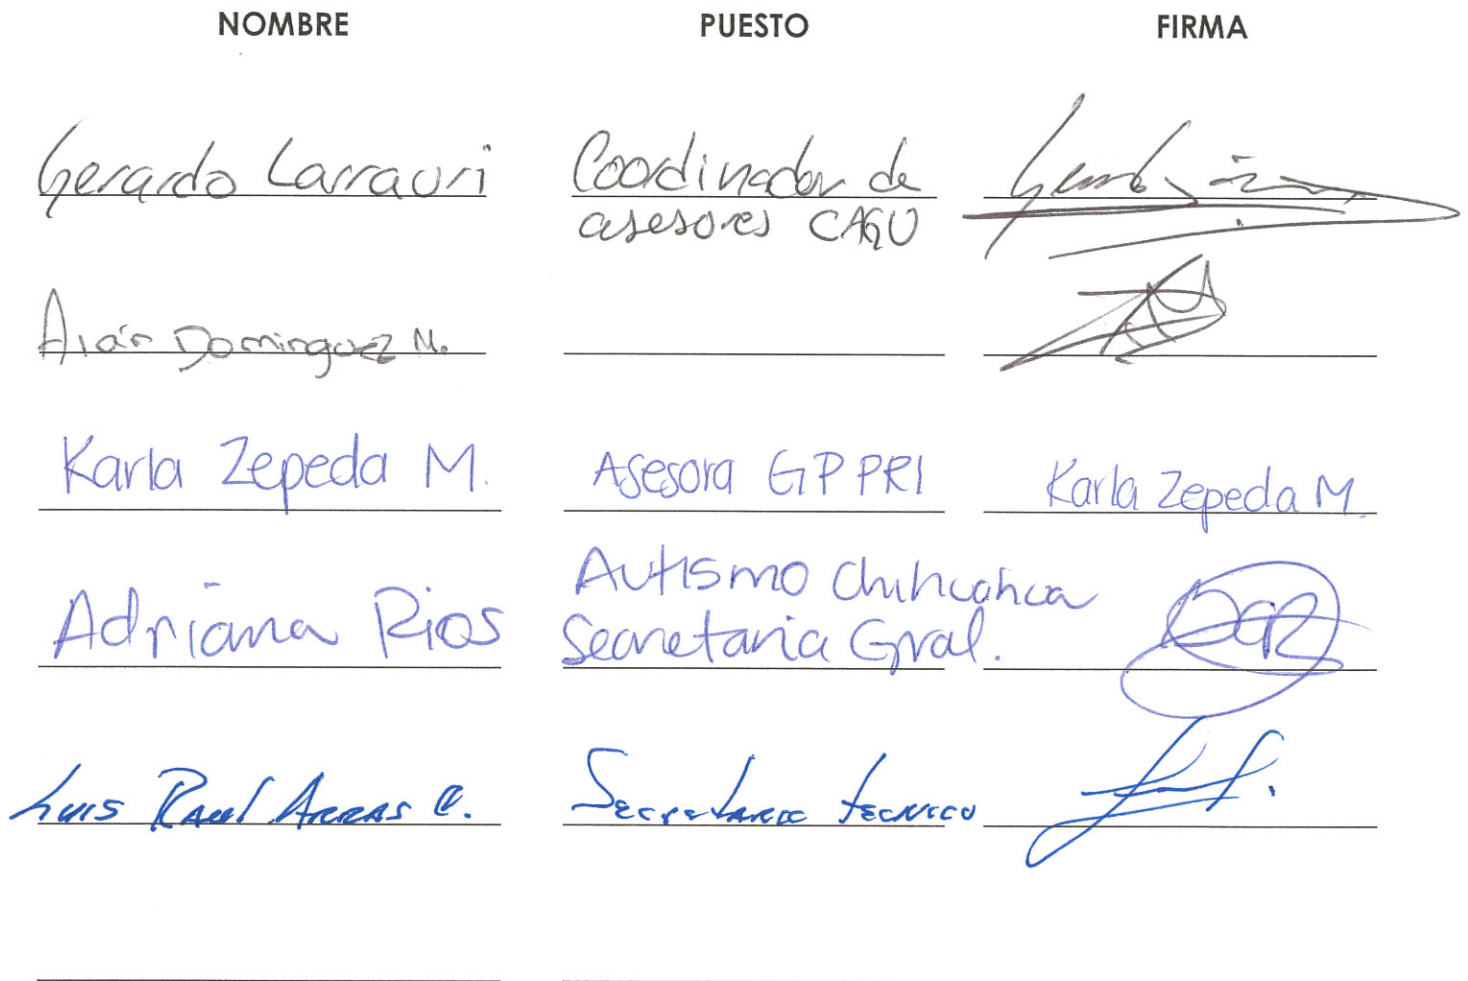 NOMBRE PUESTO FIRMA
Gerardo Larrauri Coordinador de
asesores CAGU
Alán Dominguez M.
Karla Zepeda M. Asesora GPPRI Karla Zepeda M.
Autismo Chihuahua
Adriana Rios Secretaria Gral.
Luis Raul Arras C. Secretario Tecnico